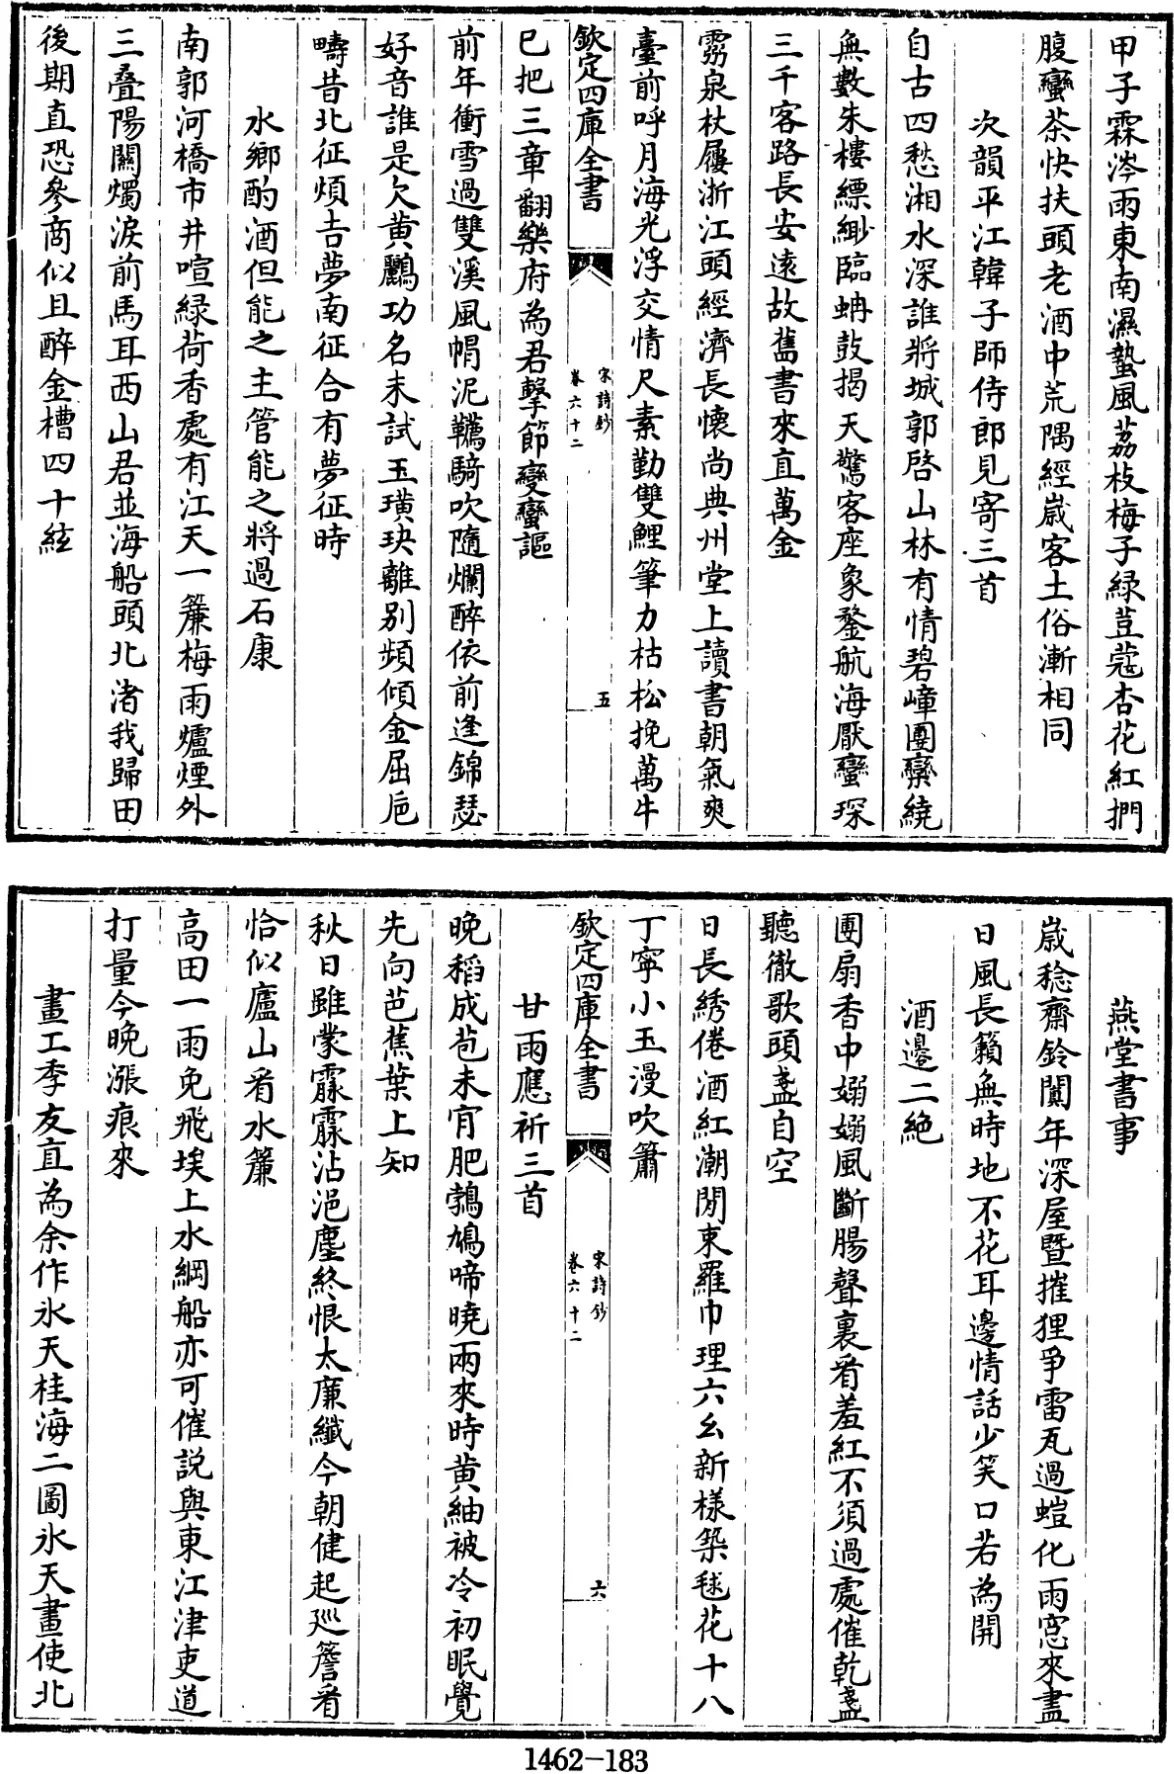 甲子霖涔雨東南濕蟄風荔枝梅子緑荳蔻杏花紅捫
腹蠻茶快扶頭老酒中荒隅經歲客土俗漸相同
次韻平江韓子師侍郎見寄三首
自古四愁湘水深誰將城郭啓山林有情碧嶂團欒繞
無數朱樓縹緲臨蚺鼓揭天驚客座象鍪航海厭蠻琛
三千客路長安遠故舊書來直萬金
霧泉杖屨浙江頭經濟長懷尚典州堂上讀書朝氣爽
臺前呼月海光浮交情尺素勤雙鯉筆力枯松挽萬牛
欽定四庫全書
宋詩鈔
卷六十二
五
已把三章翻樂府為君擊節變蠻謳
前年衝雪過雙溪風帽泥韉騎吹隨爛醉依前逢錦瑟
好音誰是欠黄鸝功名未試玉璜玦離别頻傾金屈巵
疇昔北征煩吉夢南征合有夢征時
水鄉酌酒但能之主管能之將過石康
南郭河橋市井喧緑荷香處有江天一簾梅雨爐煙外
三疊陽關燭淚前馬耳西山君並海船頭北渚我歸田
後期直恐參商似且醉金槽四十絃
燕堂書事
歲稔齋鈴闃年深屋暨摧狸爭雷瓦過螘化雨窓來盡
日風長籟無時地不花耳邊情話少笑口若為開
酒邊二絶
團扇香中嫋嫋風斷腸聲裏看羞紅不須過處催乾盞
聽徹歌頭盞自空
日長綉倦酒紅潮閒束羅巾理六幺新様築毬花十八
丁寧小玉漫吹簫
欽定四庫全書
宋詩鈔
卷六十二
六
甘雨應祈三首
晚稻成苞未肎肥鵓鳩啼曉雨來時黄紬被冷初眠覺
先向芭蕉葉上知
秋日雖蒙霡霂沾浥塵終恨太亷纎今朝健起廵簷看
恰似廬山看水簾
高田一雨免飛埃上水綱船亦可催説與東江津吏道
打量今晚漲痕來
畫工季友直為余作氷天桂海二圖氷天畫使北
1462—183